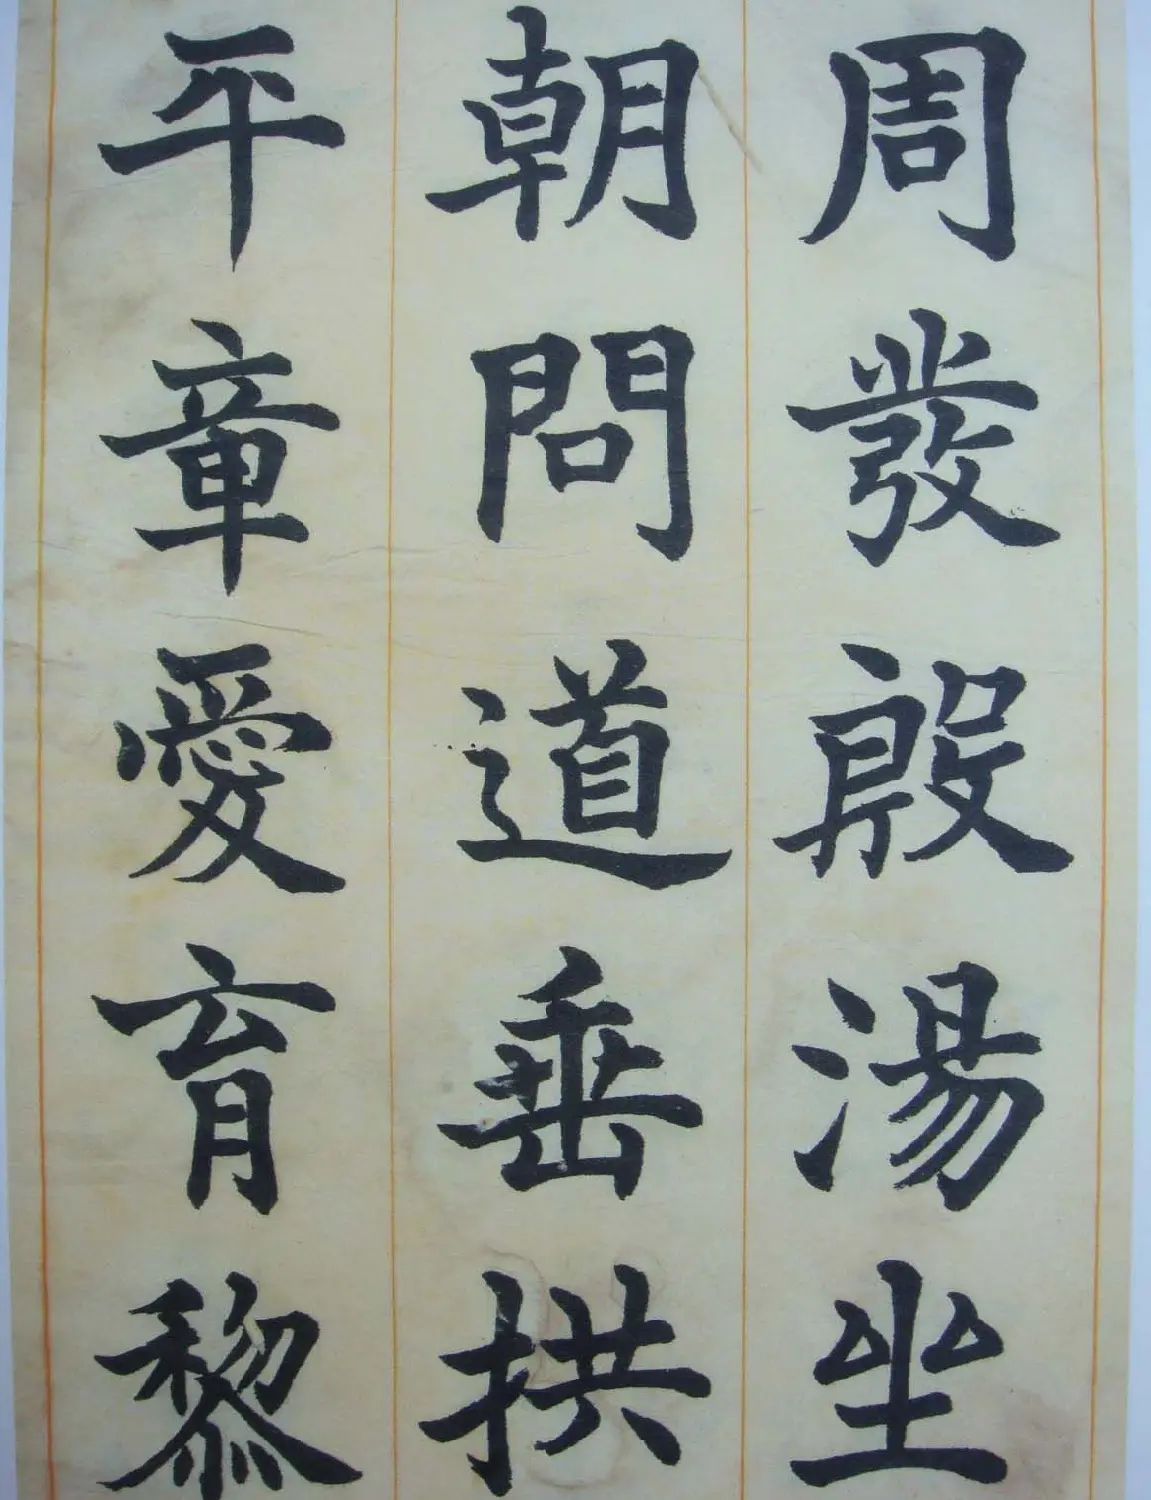 周發殷湯坐
朝問道垂拱
平章愛育黎